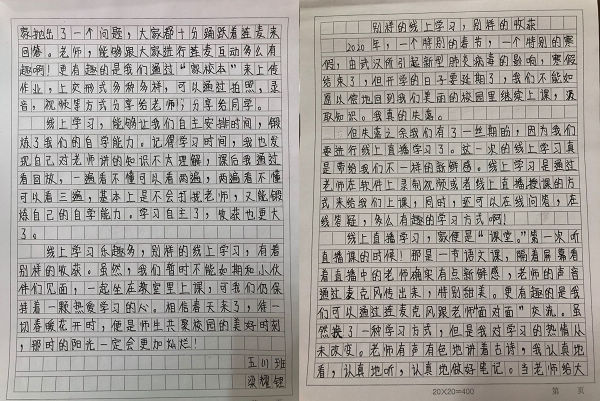 别样的线上学习，别样的收获
2020年，一个特别的春节，一个特别的寒
假，由武汉所引起新型肺炎病毒的影响，寒假
结束了，但开学的日子要延期了，我们不能如
愿以偿地回到我们美丽的校园里继续上课，汲
取知识。我真的失落。
但失落之余我们有了一丝期盼，因为我们
要进行线上直播学习了。这一次的线上学习真
是带给我们不一样的新鲜感。线上学习是通过
老师在软件上录制视频或者线上直播授课的方
式来给我们上课，同时，还可以在线问答，在
线答疑，多么有趣的学习方式啊！
线上直播学习，家便是“课堂”。第一次听
直播课的时候！那是一节语文课，隔着屏幕看
着直播中的老师确实有点新鲜感，老师的声音
通过麦克风传出来，特别甜美。更有趣的是我
们可以通过连麦克风跟老师“面对面”交流。虽
然换了一种学习方式，但是我对学习的热情从
未改变。老师有声有色地讲着古诗，我认真地
看，认真地听，认真地做好笔记。当老师给大
20X20=400 第 页
家抛出了一个问题，大家都十分踊跃着连麦来
回答。老师，能够跟大家进行连麦互动多么有
趣啊！更有趣的是我们通过“家校本”来上传
作业，上交形式多种多样，可以通过拍照，录
音，视频等方式分享给老师，分享给同学。
线上学习，能够让我们自主安排时间，锻
炼了我们的自学能力。记得学习时间，我也发
现自己对老师讲的知识不大理解，课后我通过
看回放，一遍看不懂可以看两遍，两遍看不懂
可以看三遍，基本上是不会打扰老师，又能锻
炼自己的自学能力。学习自主了，收获也更大
了。
线上学习乐趣多，别样的线上学习，有着
别样的收获。虽然，我们暂时不能如期和小伙
伴们见面，一起坐在教室里上课，可我们仍保
持着一颗热爱学习的心。相信春天来了，待一
切春暖花开时，便是师生共聚校园的美好时刻
，那时的阳光一定会更加灿烂！
五(1)班
梁耀锂